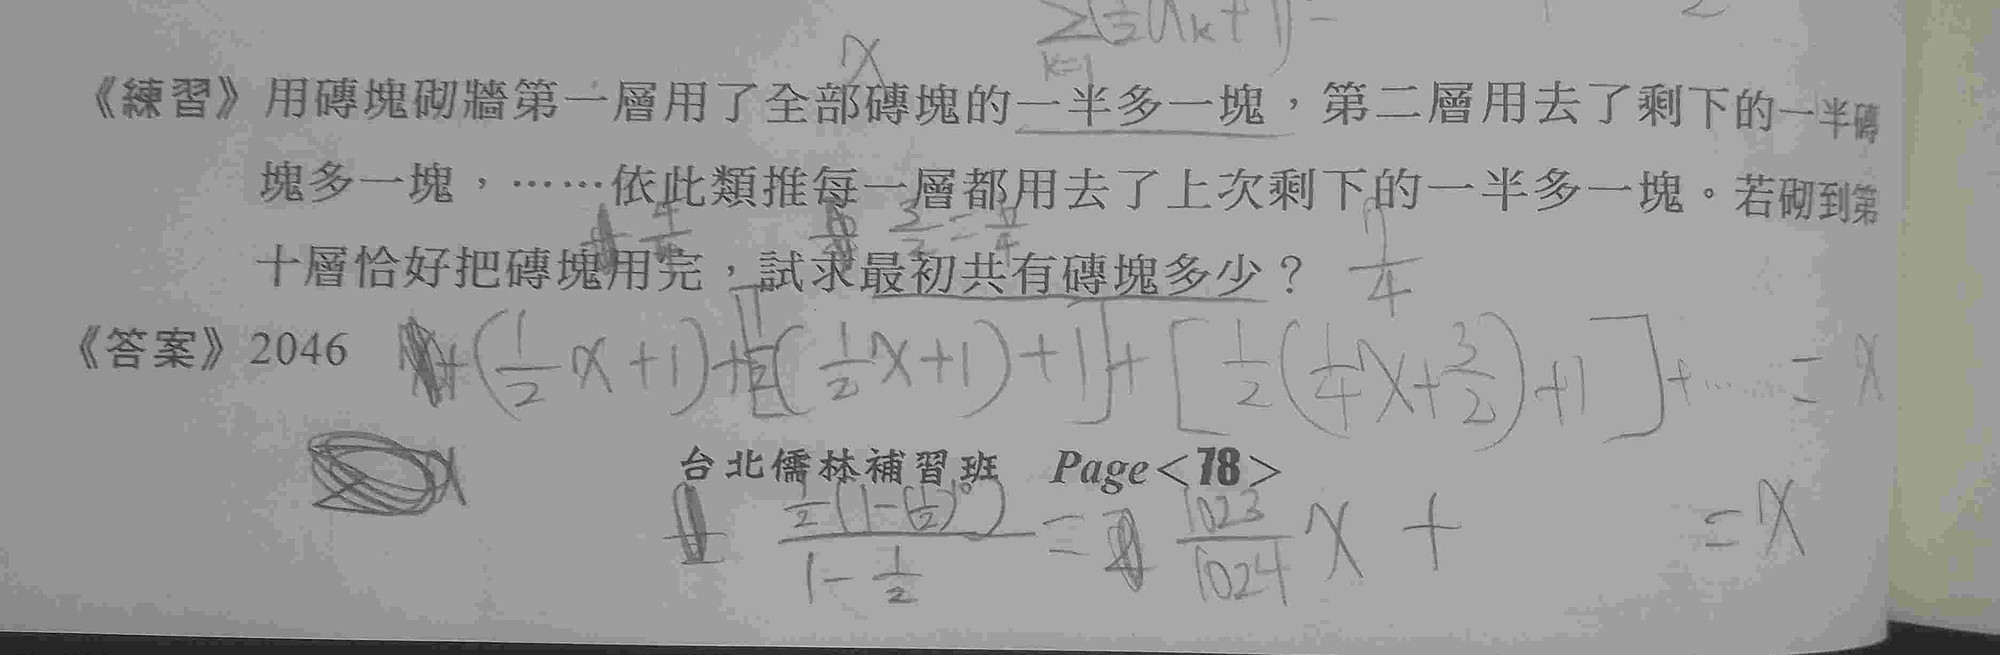 x
《練習》用磚塊砌牆第一層用了全部磚塊的一半多一塊，第二層用去了剩下的一半磚
塊多一塊，……依此類推每一層都用去了上次剩下的一半多一塊。若砌到第
十層恰好把磚塊用完，試求最初共有磚塊多少？ 7/4
《答案》2046 (1/2 x+1)+[1/2(1/2 x+1)+1]+[1/2(1/4 x+3/2)+1]+… = x
x
台北儒林補習班 Page<78>
= 1023/1024 x + = x